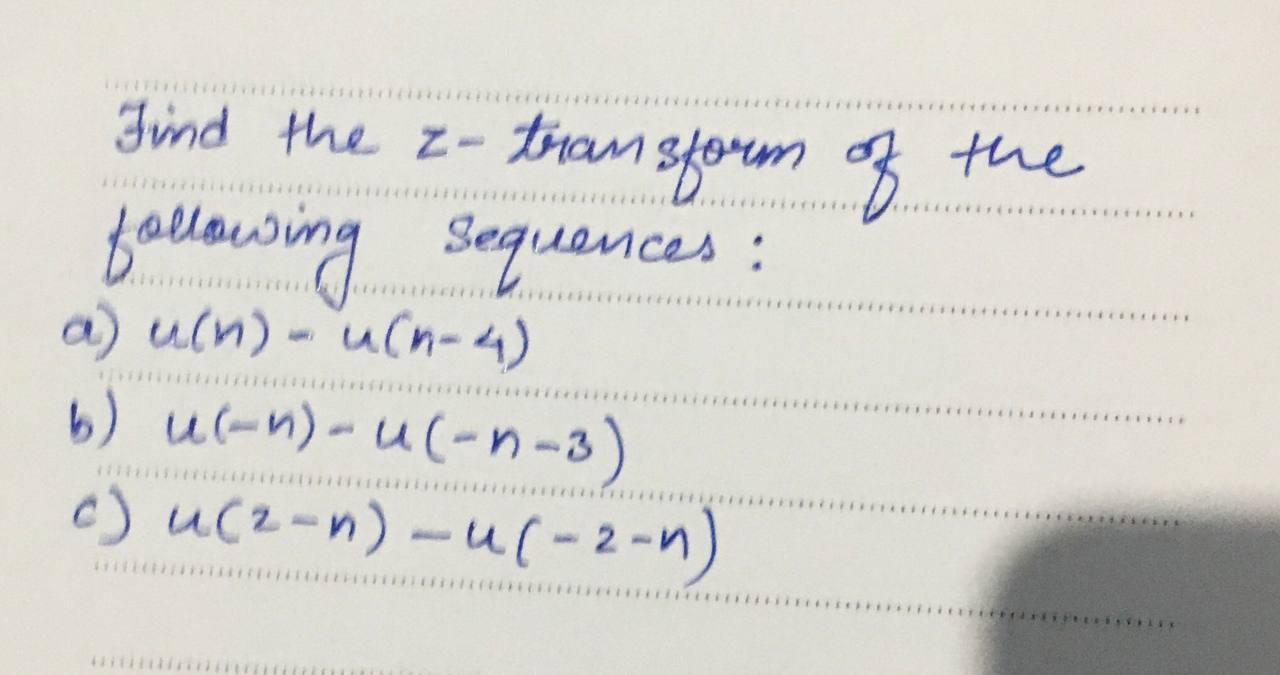 Find the z-transform of the
following sequences:
a) u(n) - u(n-4)
b) u(-n) - u(-n-3)
c) u(2-n) - u(-2-n)